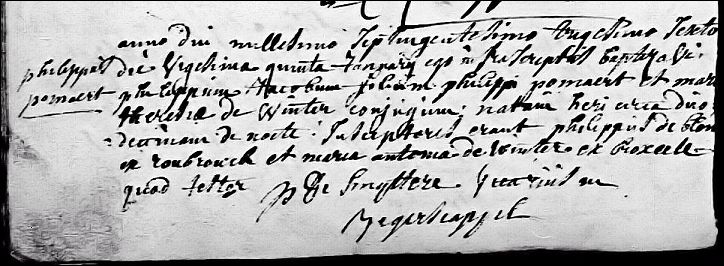 anno dni millesimo septingentesimo trigesimo sexto
philippus die vigesima quinta January ego infrascriptus baptizavi
pomaert philippum Jacobum filium philippi pomaert et mari
theresiæ de Winter conjugum: natum heri circa duo
decimam de nocte: Susceptores erant philippus de
ex roubrouck et maria antonia de Winter ex broxeele
quod testor P De Smyttere vicarius in
Zegerscappel